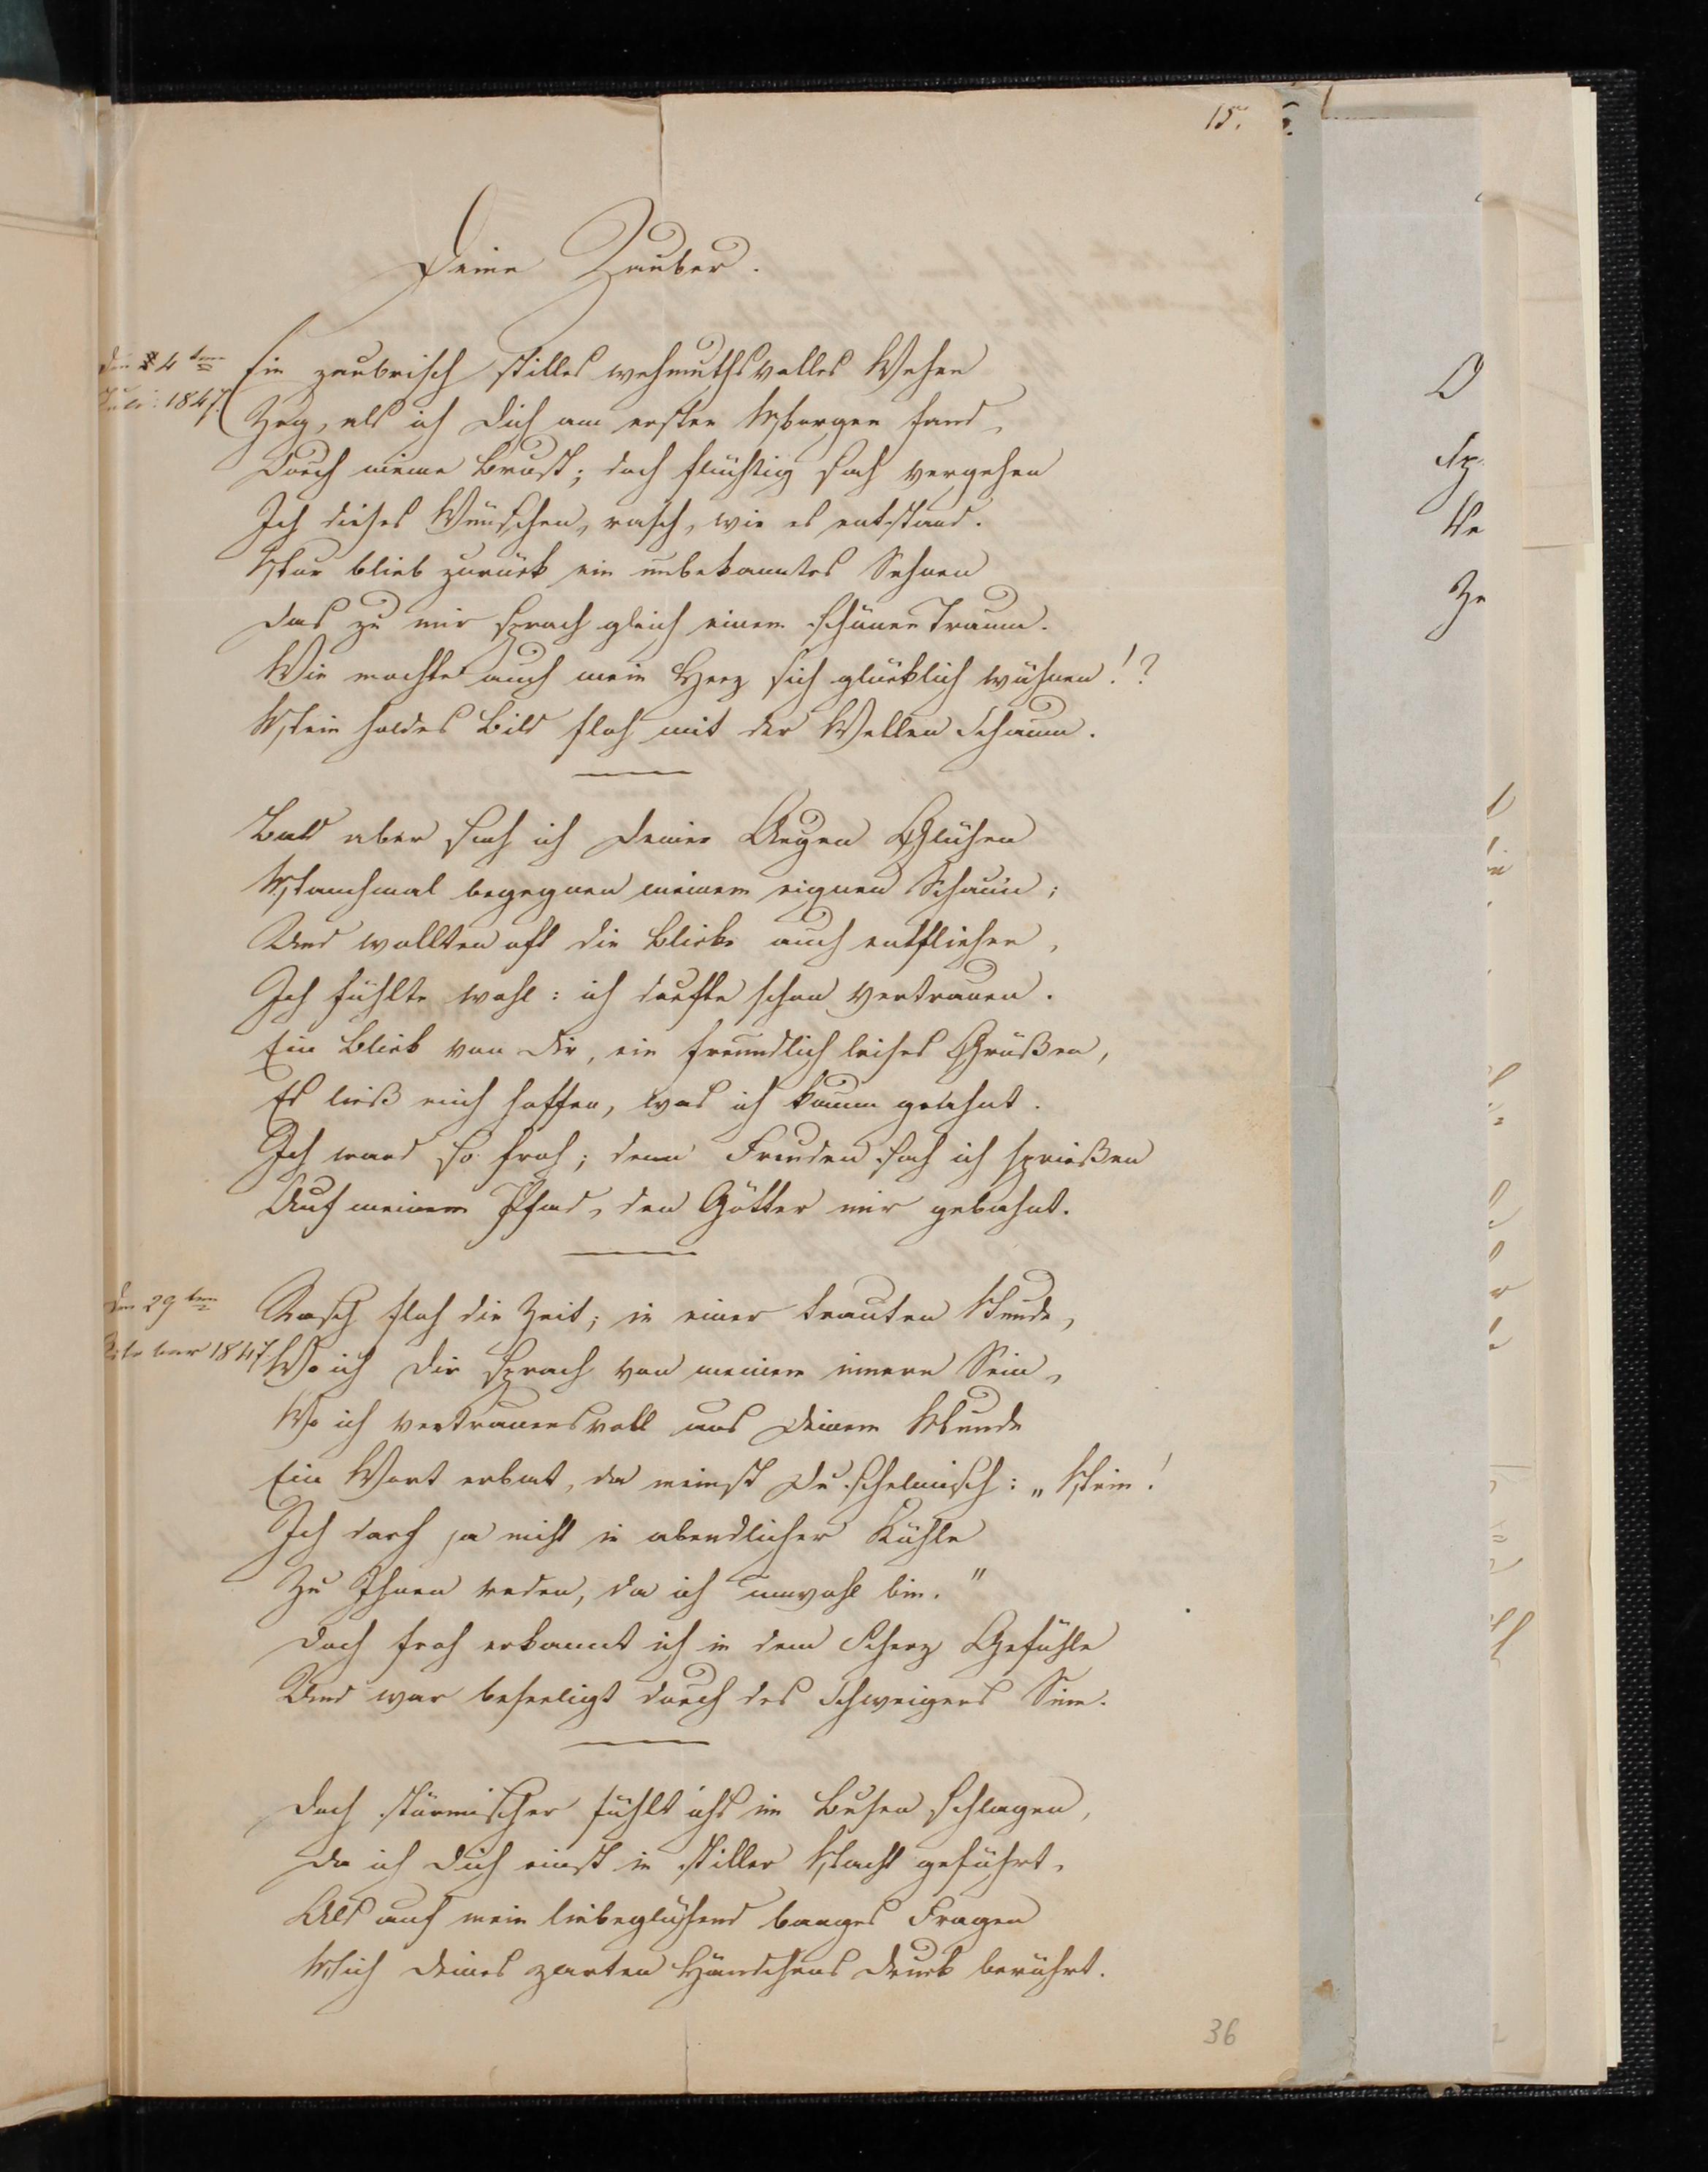 15.
Deine Zauber.
den 4ten
Juli: 1847.
Ein zaubrisch stilles wehmuthsvolles Wehen
Zog, als ich Dich am ersten Morgen fand,
Durch meine Brust; doch flüchtig sah vergehen
Ich dieses Wünschen, rasch, wie es entstand.
Nur blieb zurück ein unbekanntes Sehnen
Das zu mir sprach gleich einem schönen Traum.
Wie mochte auch mein Herz sich glücklich wähnen!?
Mein holdes Bild floh mit der Wellen Schaum.
Bald aber sah ich Deiner Augen Glühen
Manchmal begegnen meinem eignen Schaun;
Und wollten oft die Blicke auch entfliehen,
Ich fühlte wohl: ich durfte schon vertrauen.
Ein Blick von Dir, ein freundlich leises Grüßen,
Es ließ mich hoffen, was ich kaum geahnt.
Ich ward so froh; denn Freuden sah ich sprießen
Auf meinem Pfad, den Götter mir gebahnt.
den 29ten
October 1847
Rasch floh die Zeit; in einer trauten Stunde,
Wo ich Dir sprach von meinem innern Sein,
Wo ich vertrauensvoll aus Deinem Munde
Ein Wort erbat, da meinst Du schelmisch: „Nein!
Ich darf ja nicht in abendlicher Kühle
Zu Ihnen reden, da ich unwohl bin."
Doch froh erkannt ich in dem Scherz Gefühle
Und war beseeligt durch des Schweigens Sinn.
Doch stürmischer fühlt ichs im Busen schlagen,
Da ich Dich einst in stiller Nacht geführt,
Als auf mein liebeglühend banges Fragen
Mich Deines zarten Händchens Druck berührt.
36